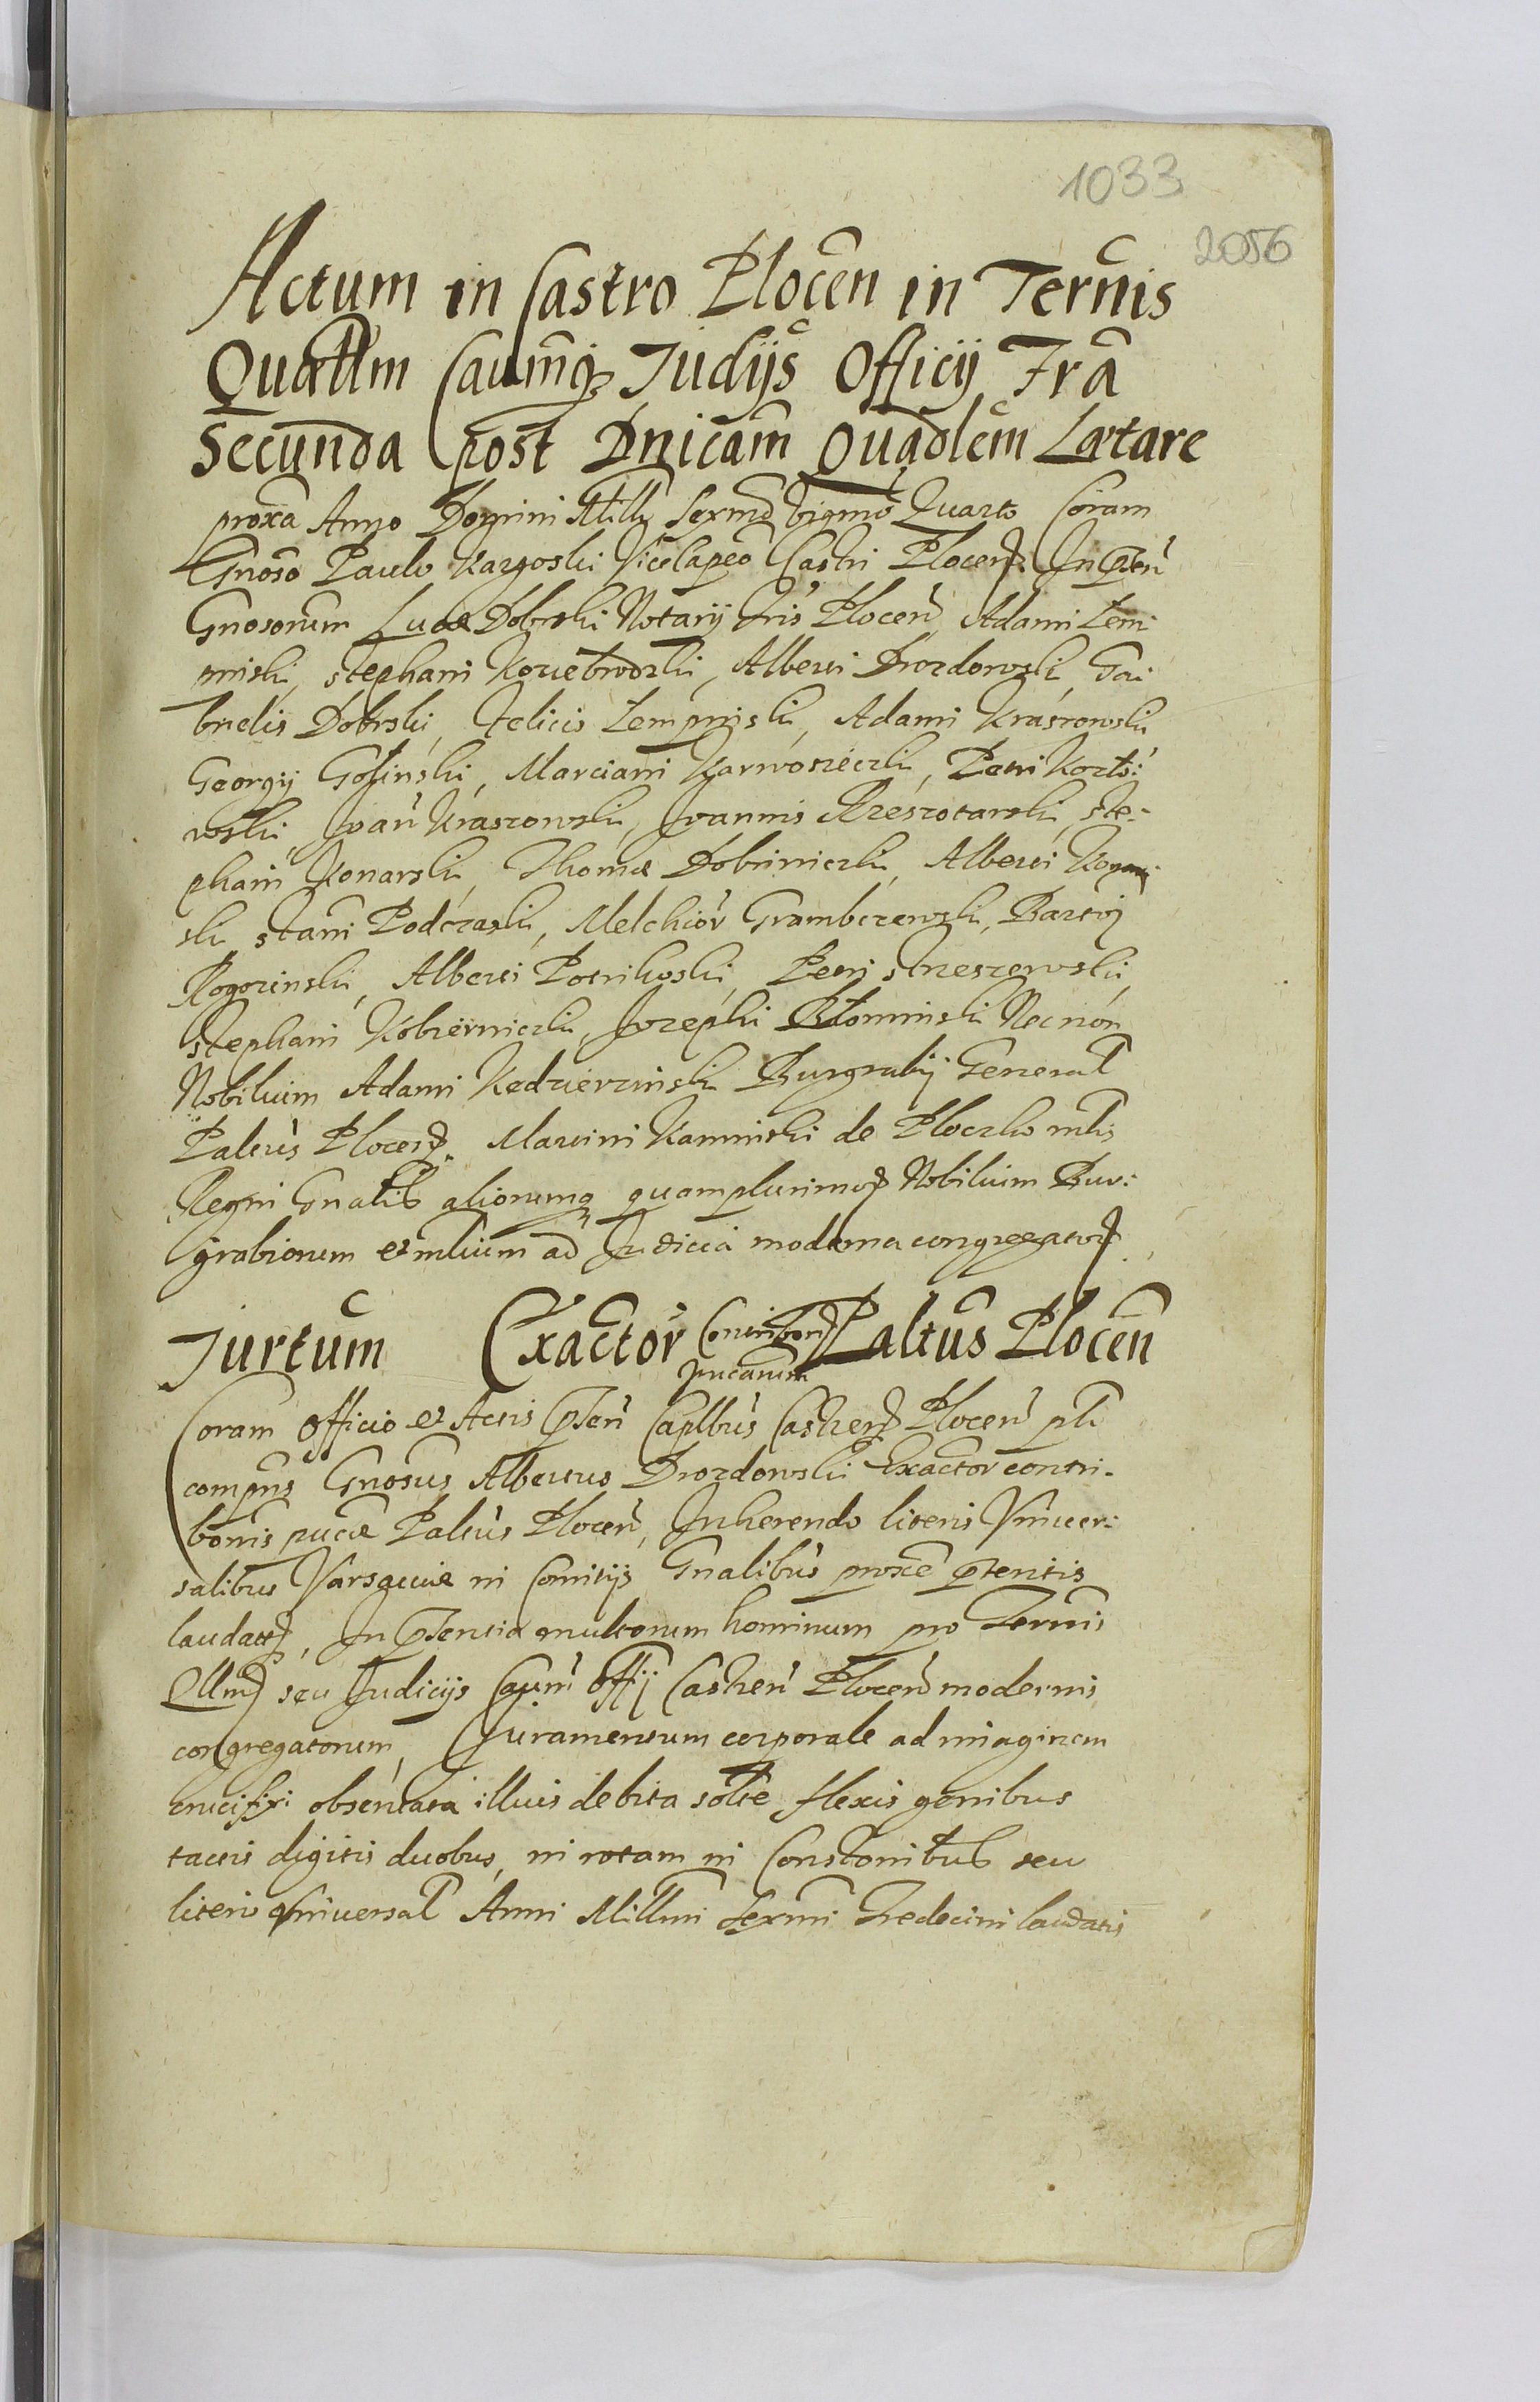 1033
2056
Actum in Castro Plocen in Termis
Quærlm Caumq Judijs Officij Fra
Secunda post Dnicam Quadlem Lætare
proxa Anno Domini Millo Sexmo vigmo Quarto Coram
Gnoso Paulo Kargoski Vicecapeo Castri Plocen. In pnten
Gnosorum Lucæ Dobrski Notarij Tris Plocen, Adami Zem
minski, Stephani Koziebrodzki, Alberti Drozdowski, Ga:
brielis Dobrski, Felicis Zempinski, Adami Kraszowski
Georgij Golinski, Marciani Karwosieczki, Petri
wski, Joan Kraszowski, Joannis Rzeszotarski, Ste:
phani Konarski, Thomæ Dobrniczki, Alberti
ski, Stani Podczaski, Melchior Grambczewski, Bartij
Rogozinski, Alberti Potrikoski, Petri Strzeszewski,
Stephani Kobierniczki, Jozephi Blominski Necnon
Nobilium Adami Kedzierzinski Burgrabij General
Paltus Plocen. Martini Kaminski de Ploczko mlis
Regni Gnalib aliorumq quamplurimor Nobilium Bur:
grabiorum et mlium ad Judicia moderna congregator
Jurtum Exactor Contribon Paltus Plocen
pucarum
Coram Officio et Actis pnten Caplbus Castren Plocen plr
compns Gnosus Albertus Drozdowski Exactor contri:
bonis pucæ Paltus Plocen, Inherendo literis Vniver:
salibus Varsauiæ in Comitijs Gnalibus proxe pteritis
laudatis, In pntentia multorum hominum pro Termis
Qllm seu Judicijs Caum Offij Castren Plocen modernis
congregatorum, Juramentum corporale ad imaginem
crucifixi obseruata illius debita solte flexis genibus
tactis digitis duobus, in rotam in Constonibus seu
literis Vniversal Anni Millmi Sexmi Tredecimi laudatis